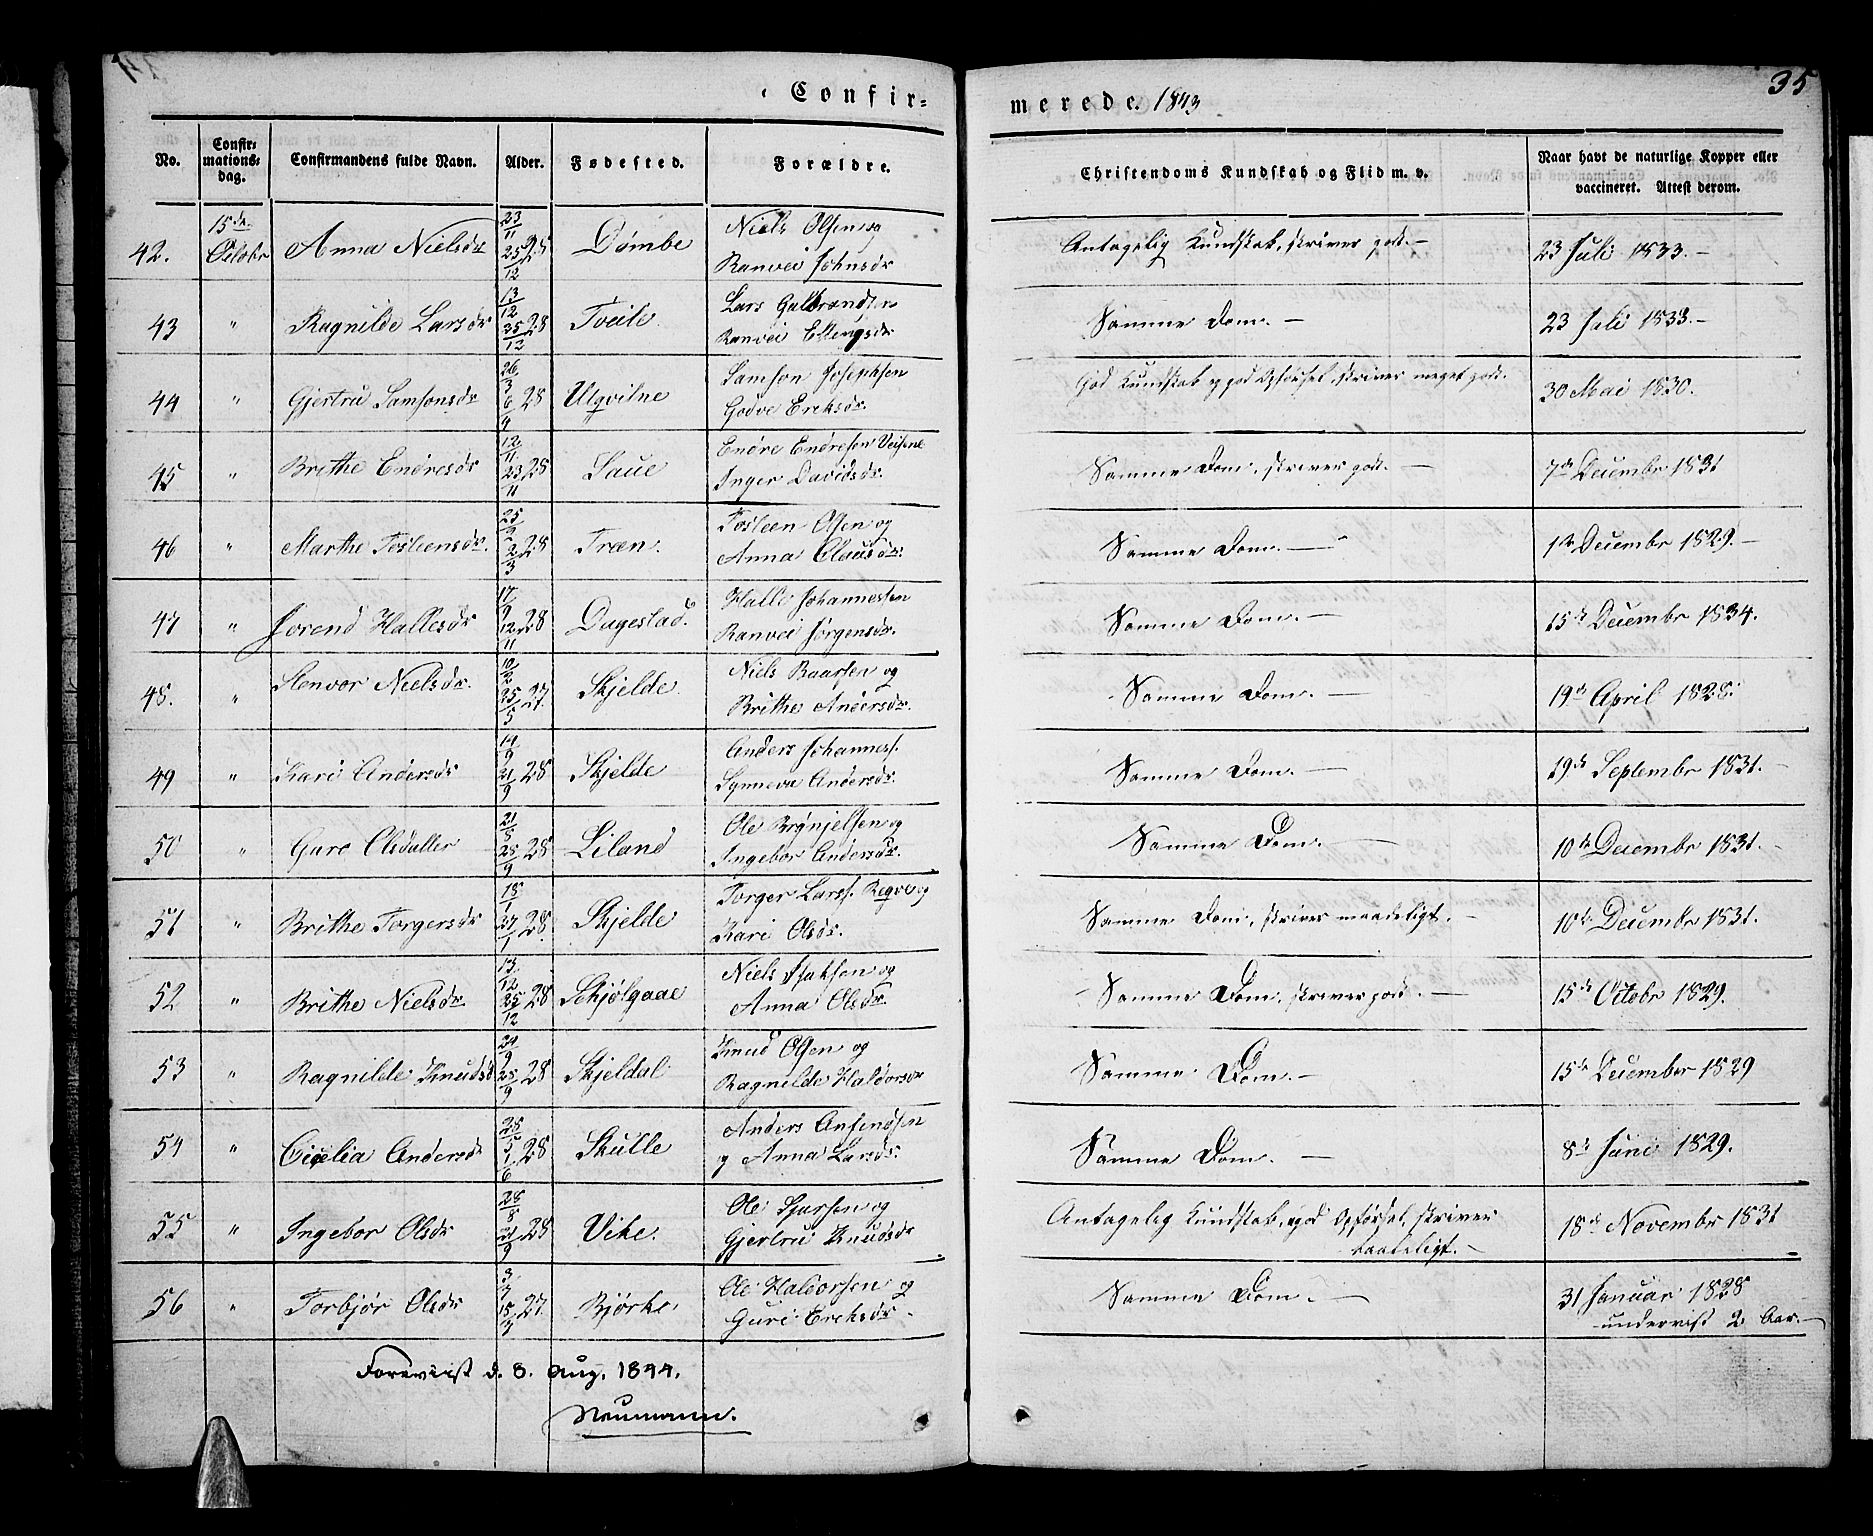 Confir=
merede. 1843
35
No.
Confir-
mations-
dag.
Confirmandens fulde Navn.
Alder.
Fødested.
Forældre.
Christendoms Kundskab og Flid m. v.
Naar havt de naturlige Kopper eller
vaccineret. Attest derom.
42. 15de Octobr Anna Nielsdr 23/11 25/12 28 Dømbe Niels Olsen og
Ranvei Johnsdr
Antagelig Kundskab, skriver godt. — 23 Juli 1833. —
43 " Ragnilde Larsdr 13/12 25/12 28 Tveite. Lars Gulbrandsen
Ranvei
Samme Dom. — 23 Juli 1833. —
44 " Gjertru Samsonsdr 26/3 6/4 28 Ulqvilne Samson Josephsen
Godve Eriksdr.
God Kundskab og god Opførsel, skriver meget godt. 30 Mai 1830.
45 " Brithe Endresdr 12/11 23/11 28 Saue Endre Endresen Veisene
Inger Davidsdr.
Samme Dom, skriver godt. — 7de Decembr 1831
46 " Marthe Tosteensdr. 25/2 2/3 28 Træn. Tosteen Olsen og
Anna Clausdr.
Samme Dom. — 1te Decembr 1829. —
47 " Jorend Hallesdr 17/9 12/11 28 Dugestad. Halle Johannessen
Ranvei Jørgensdr.
Samme Dom. — 15de Decembr 1834.
48. " Stenvor Nielsdr. 10/2 25/5 27. Skjelde. Niels Baarsen og
Brithe Andersdr.
Samme Dom. — 19de April 1828.
49 " Kari Andersdr 14/9 21/9 28 Skjelde Anders Johanness.
Synneva Andersdr.
Samme Dom. — 19de Septembr 1831. —
50 " Guro Olsdatter 21/8 28/9 28 Liland Ole Brynjelsen og
Ingebor Andersdr.
Samme Dom. — 10de Decembr 1831. —
51 " Brithe Torgersdr 18/1 27/1 28. Skjelde Torger Larss. Reqve og
Kari Olsdr.
Samme Dom, skriver maadeligt. — 10de Decembr 1831.
52 " Brithe Nielsdr 13/12 25/12 28 Schjølgaae Niels Isaksen og
Anna Olsdr.
Samme Dom, skriver godt. — 15de Octobr 1829.
53 " Ragnilde Knudsd 24/9 28/9 28 Skjeldal Knud Olsen og
Ragnilde Haldorsdr
Samme Dom. — 15de December 1829
54 " Cicelia Andersdr 28/5 1/6 28 Skulle Anders Ansendsen
og Anna Larsdr.
Samme Dom. — 8de Juni 1829.
55 " Ingebor Olsdr 28/8 21/9 28 Vike. Ole Sjursen og
Gjertru Knudsdr
Antagelig Kundskab, god Opførsel, skriver
taaleligt. — 18de Novembr 1831
56 " Torbjør Olsdr 3/3 18/3 27. Bjørke. Ole Haldorsen og
Guri Eriksdr.
Samme Dom. — 31 Januar 1828
underviist 2 Aar. —
Foreviist d. 8. Aug. 1844.
Neumann.